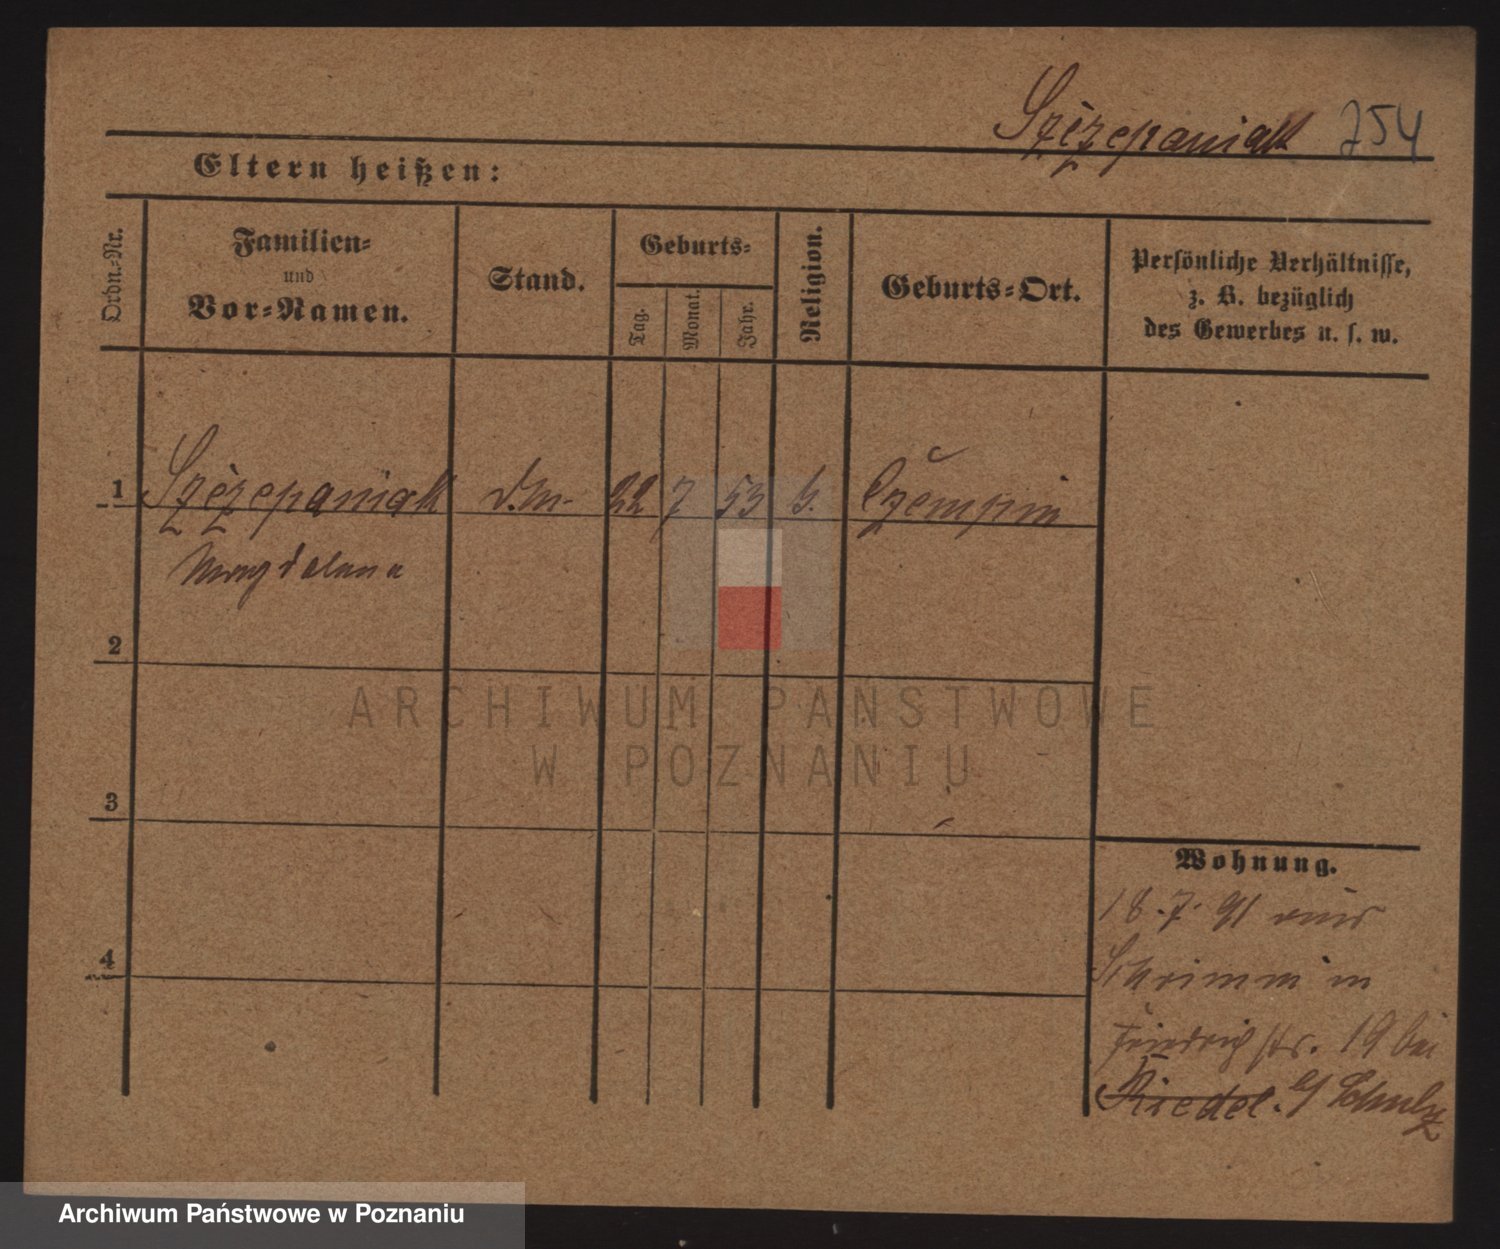 Szczepaniak 254
Eltern heißen:
Ordn.-Nr.
Familien-
und
Vor-Namen.
Stand.
Geburts-
Tag.
Monat.
Jahr.
Religion.
Geburts-Ort.
Persönliche Verhältnisse,
z. B. bezüglich
des Gewerbes u. s. w.
1 Szczepaniak 22 7 53 Czempin
Magdalena
2
ARCHIWUM PAŃSTWOWE
W POZNANIU
3
Wohnung.
18.7.91 aus
4
Schrimm in
Friedrichstr. 19 bei
Riedel. Schulz
Archiwum Państwowe w Poznaniu